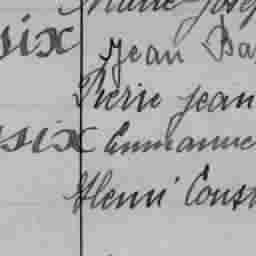 Marie Josep
six Jean Ba
Pierre Jean
six Emmanue
Henri Const